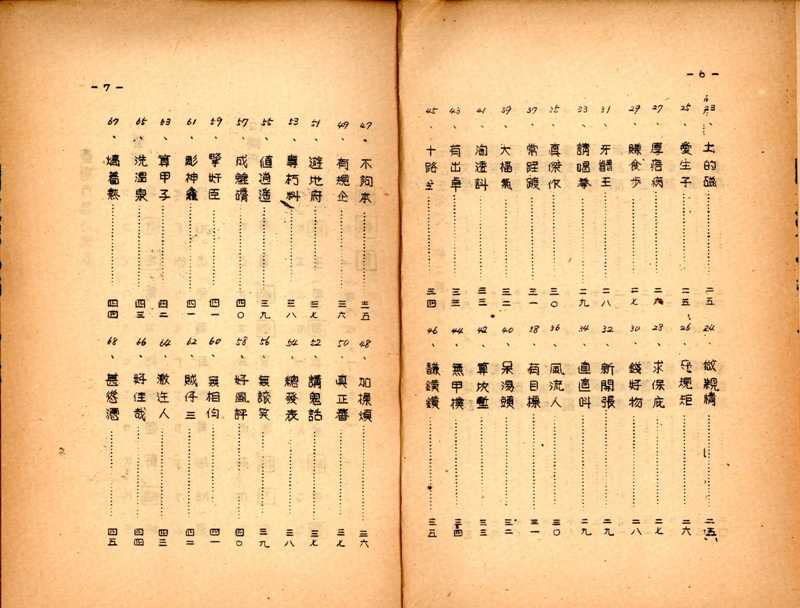 -6-
23、上的磁……二五 24、做親情……二五
25、愛生子……二五 26、規矩……二六
27、厚痞病……二六 28、求保庇……二七
29、賺食步……二七 30、錢好物……二八
31、牙齒王……二八 32、新開張……二九
33、請喝拳……二九 34、直直叫……二九
35、真傑作……三〇 36、風流人……三〇
37、常……三一 38、有目標……三一
39、大福氣……三二 40、呆湯頭……三二
41、透抖……三三 42、算……三三
43、有出卓……三三 44、無甲模……三四
45、十路全……三四 46、謙鑽鑽……三五
-7-
47、不夠本……三五 48、加操煩……三六
49、有規企……三六 50、真正番……三七
51、遊地府……三七 52、講鬼話……三七
53、專朽料……三八 54、總發表……三八
55、值過……三九 56、無談笑……三九
57、成……四〇 58、好風評……四〇
59、好臣……四一 60、無相向……四一
61、彭神龜……四一 62、賊仔三……四二
63、算甲子……四二 64、激人……四三
65、洗溫泉……四三 66、好佳哉……四四
67、燒著熱……四四 68、甚憑……四五